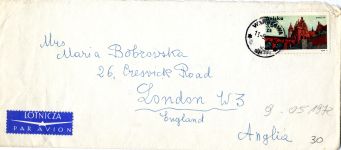 Mrs
Maria Bobrowska
26, Creswick Road
London W3
England
Anglia
LOTNICZA
PAR AVION
Polska
WARSZAWA
9.05.1972
30